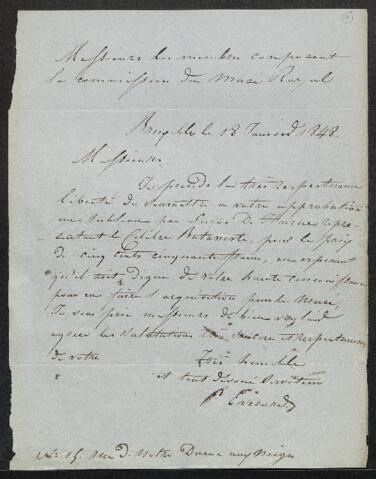 Messieurs les membres composant
la commission du Musé Royal
Bruxelle le 18 1848.
Messieurs
Je prends la très respectueuse
liberté de soumettre a votre approbation
un tableau par
sentant le Célèbre Botaniste, pour le prix
de cinq cents cinquante francs, en esperant
qu'il soit digne de votre haute connaissance
pour en faire l'acquisition pour le Musé
Je vous prie messieurs de bien vouloir
agréer les salutations sincere et respectueuse
de votre Très humble
et tout dévoué Serviteur
P
No 15. rue de Notre Dame aux Neiges